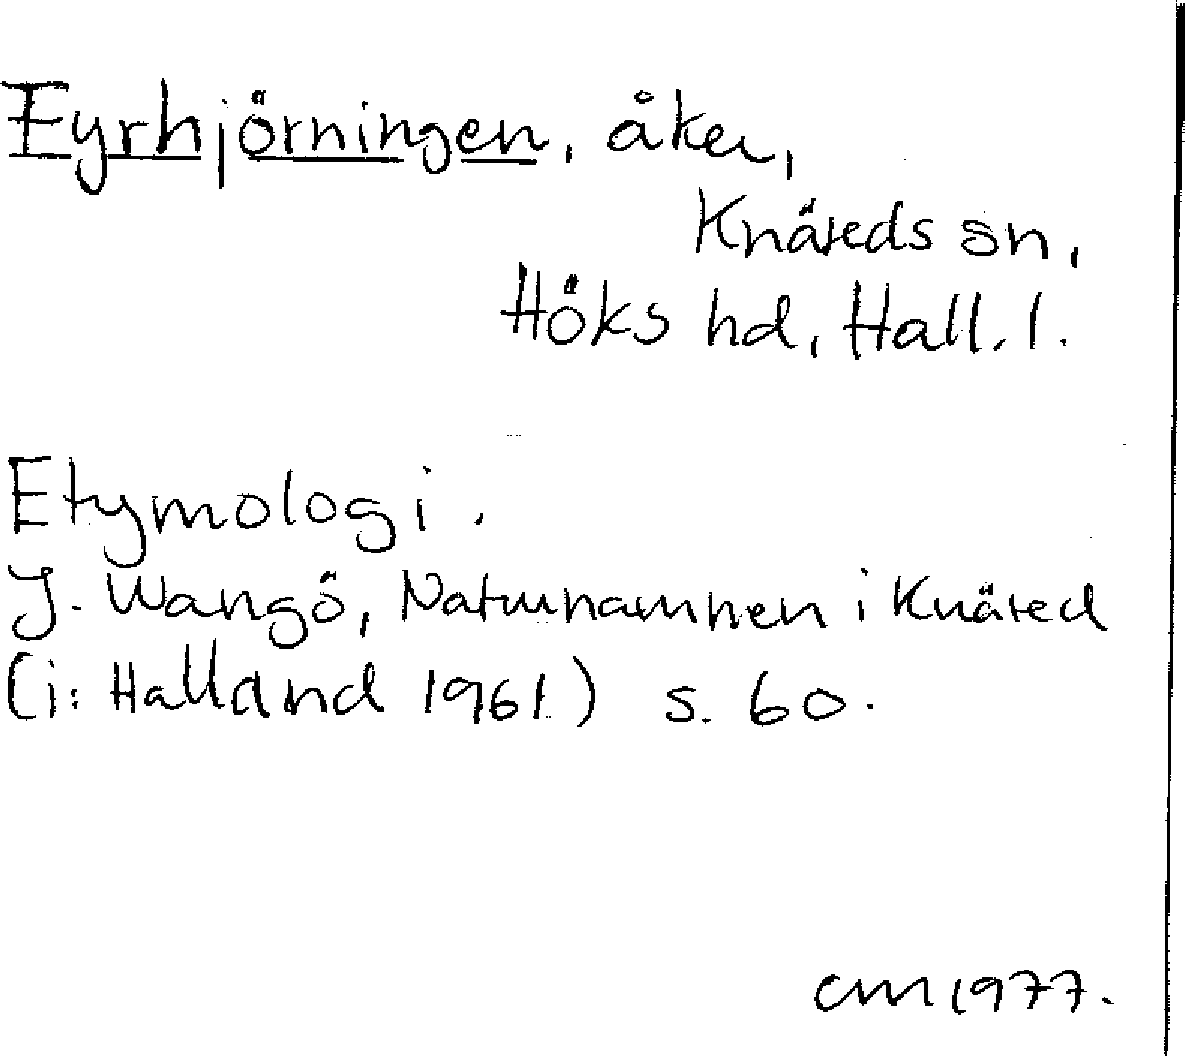 Fyrhjörningen, åker,
Knäreds sn,
Höks hd, Hall. l.
Etymologi.
J. Wangö, Naturnamnen i Knäred
(i: Halland 1961) s. 60.
CM 1977.